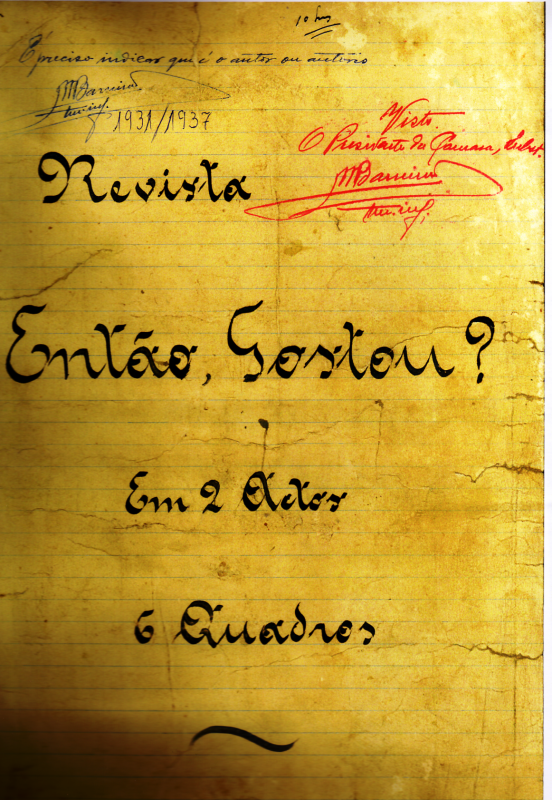 10 hs
É preciso indicar que é o autor ou autores
MBarreiro
1931/1937
Visto
O Presidente da Camara,
MBarreiro
Revista
Então, Gostou?
Em 2 Actos
6 Quadros